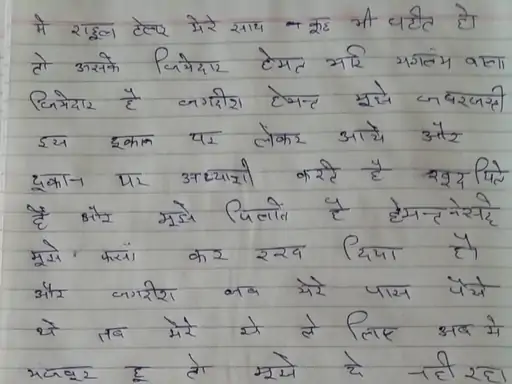 मे राहुल टेलर मेरे साथ कुछ भी घटीत हो
तो उसके जिमेदार हेमन्त भारि मंगलम वाला
जिमेदार है जगदीश हेमन्त मुझे जबरजस्ती
इस दुकान पर लेकर आये और
दुकान पर अय्याशी करते है खुद पिते
है और मुझे पिलाते है हेमन्त ने
मुझे फसा कर रख दिया है।
और जगदीश जब मेरे पास पैसे
थे तब मेरे से ले लिए अब मे
मजबूर हू तो मुझे दे नही रहा